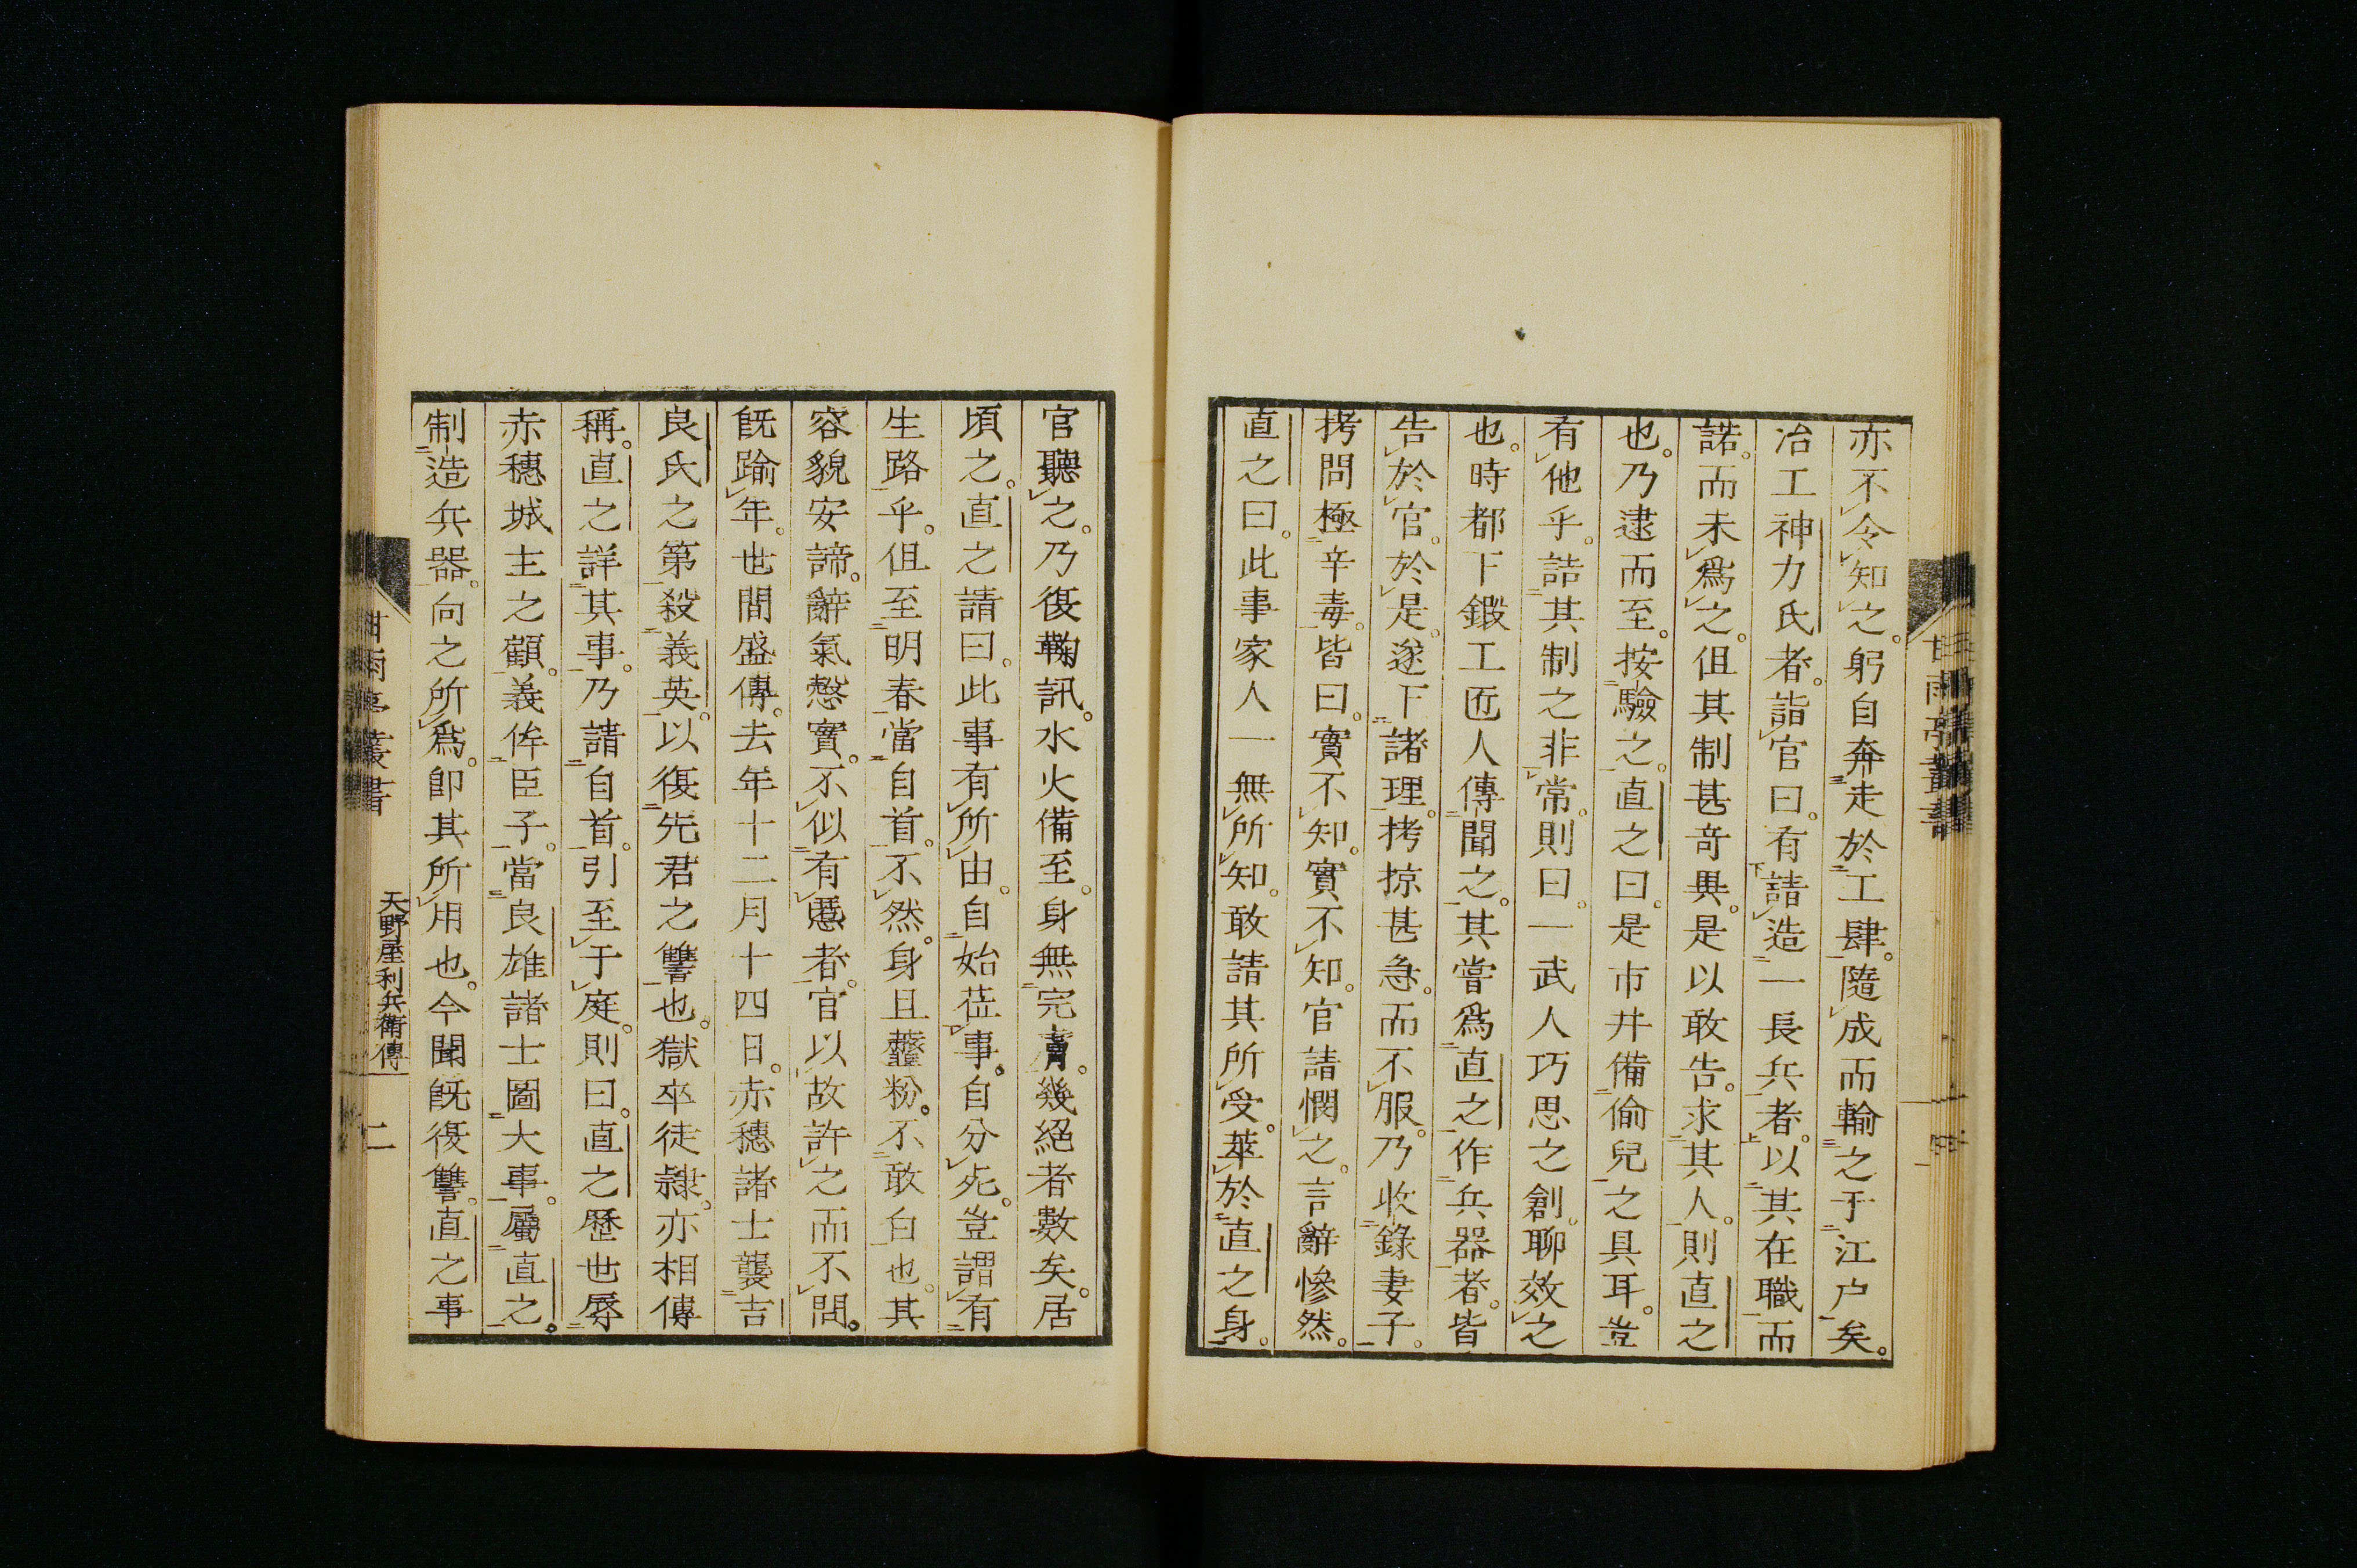 亦不令知之。躬自奔走於工肆。隨成而輸之于江户矣。
冶工神力氏者。詣官曰。有請造一長兵者。以其在職而
諾。而未爲之。但其制甚奇異。是以敢告。求其人。則直之
也。乃逮而至。按驗之。直之曰。是市井備偷兒之具耳。豈
有他乎。詰其制之非常。則曰。一武人巧思之創。聊效之
也。時都下鍛工匠人傳聞之。其嘗爲直之作兵器者。皆
告於官。於是。遂下諸理。拷掠甚急。而不服。乃收錄妻子。
拷問極辛毒。皆曰。實不知。實不知。官請憫之。言辭慘然。
直之曰。此事家人一無所知。敢請其所受。萃於直之身。
官聽之。乃復鞫訊。水火備至。身無完膚。幾絕者數矣。居
頃之。直之請曰。此事有所由。自始莅事。自分死。豈謂有
生路乎。但至明春。當自首。不然。身且虀粉。不敢白也。其
容貌安諦。辭氣慤實。不似有慝者。官以故許之而不問。
既踰年。世間盛傳。去年十二月十四日。赤穗諸士襲吉
良氏之第。殺義英。以復先君之讐也。獄卒徒隸。亦相傳
稱。直之詳其事。乃請自首。引至于庭。則曰。直之歷世辱
赤穗城主之顧。義侔臣子。當良雄諸士圖大事。屬直之。
制造兵器。向之所爲。卽其所用也。今聞既復讐。直之事
甘雨亭叢書
天野屋利兵衞傳
二